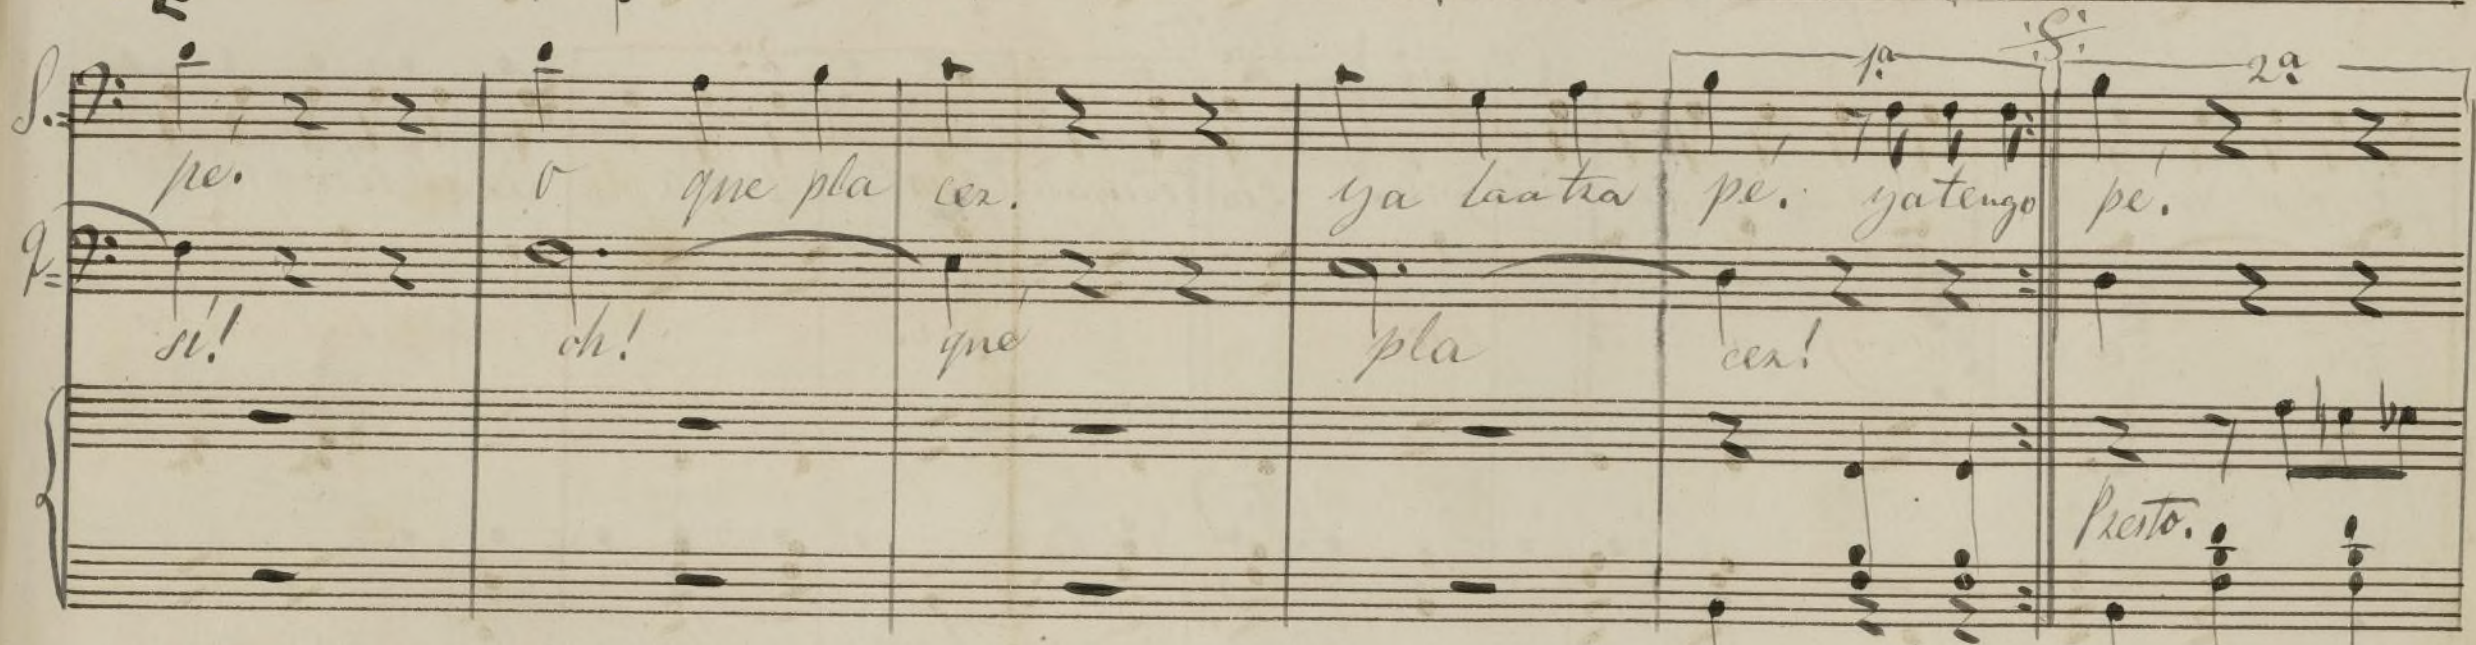 1ª 2ª
S.=
pé. o que pla cer. ya laatra pé. ya tengo pé.
q=
si! oh! que pla cer!
Presto.